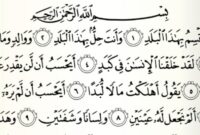 بِسْمِ اللَّهِ الرَّحْمَٰنِ الرَّحِيمِ
قْسِمُ بِهَٰذَا الْبَلَدِ ١ وَأَنتَ حِلٌّ بِهَٰذَا الْبَلَدِ ٢ وَوَالِدٍ وَمَا
لَقَدْ خَلَقْنَا الْإِنسَانَ فِي كَبَدٍ ٤ أَيَحْسَبُ أَن لَّن يَقْدِرَ عَ
يَقُولُ أَهْلَكْتُ مَالًا لُّبَدًا ٦ أَيَحْسَبُ أَن لَّمْ يَرَهُ
أَلَمْ نَجْعَل لَّهُ عَيْنَيْنِ ٨ وَلِسَانًا وَشَفَتَيْنِ ٩ وَهَدَ